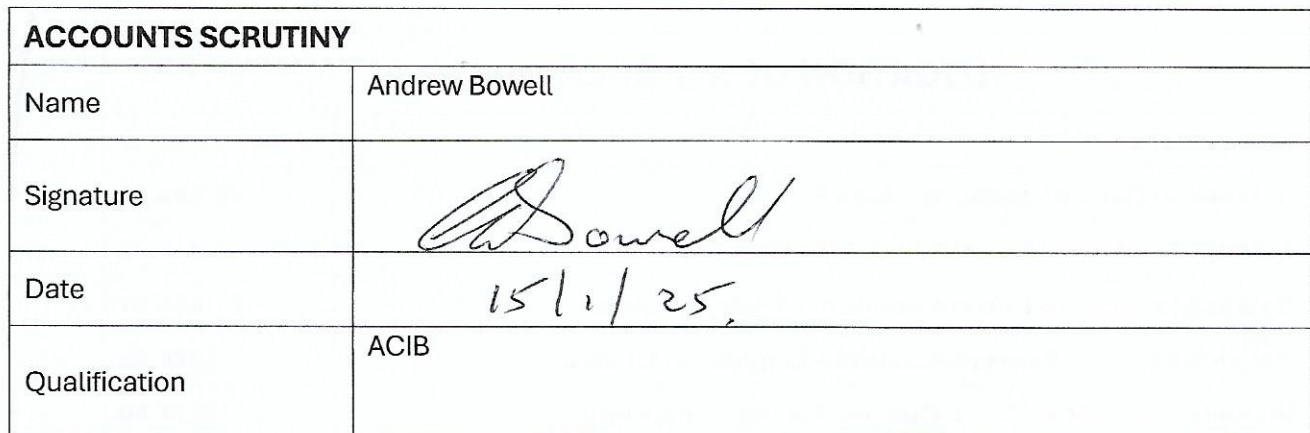 ACCOUNTS SCRUTINY
Name Andrew Bowell
Signature
Date 15/1/25.
Qualification ACIB